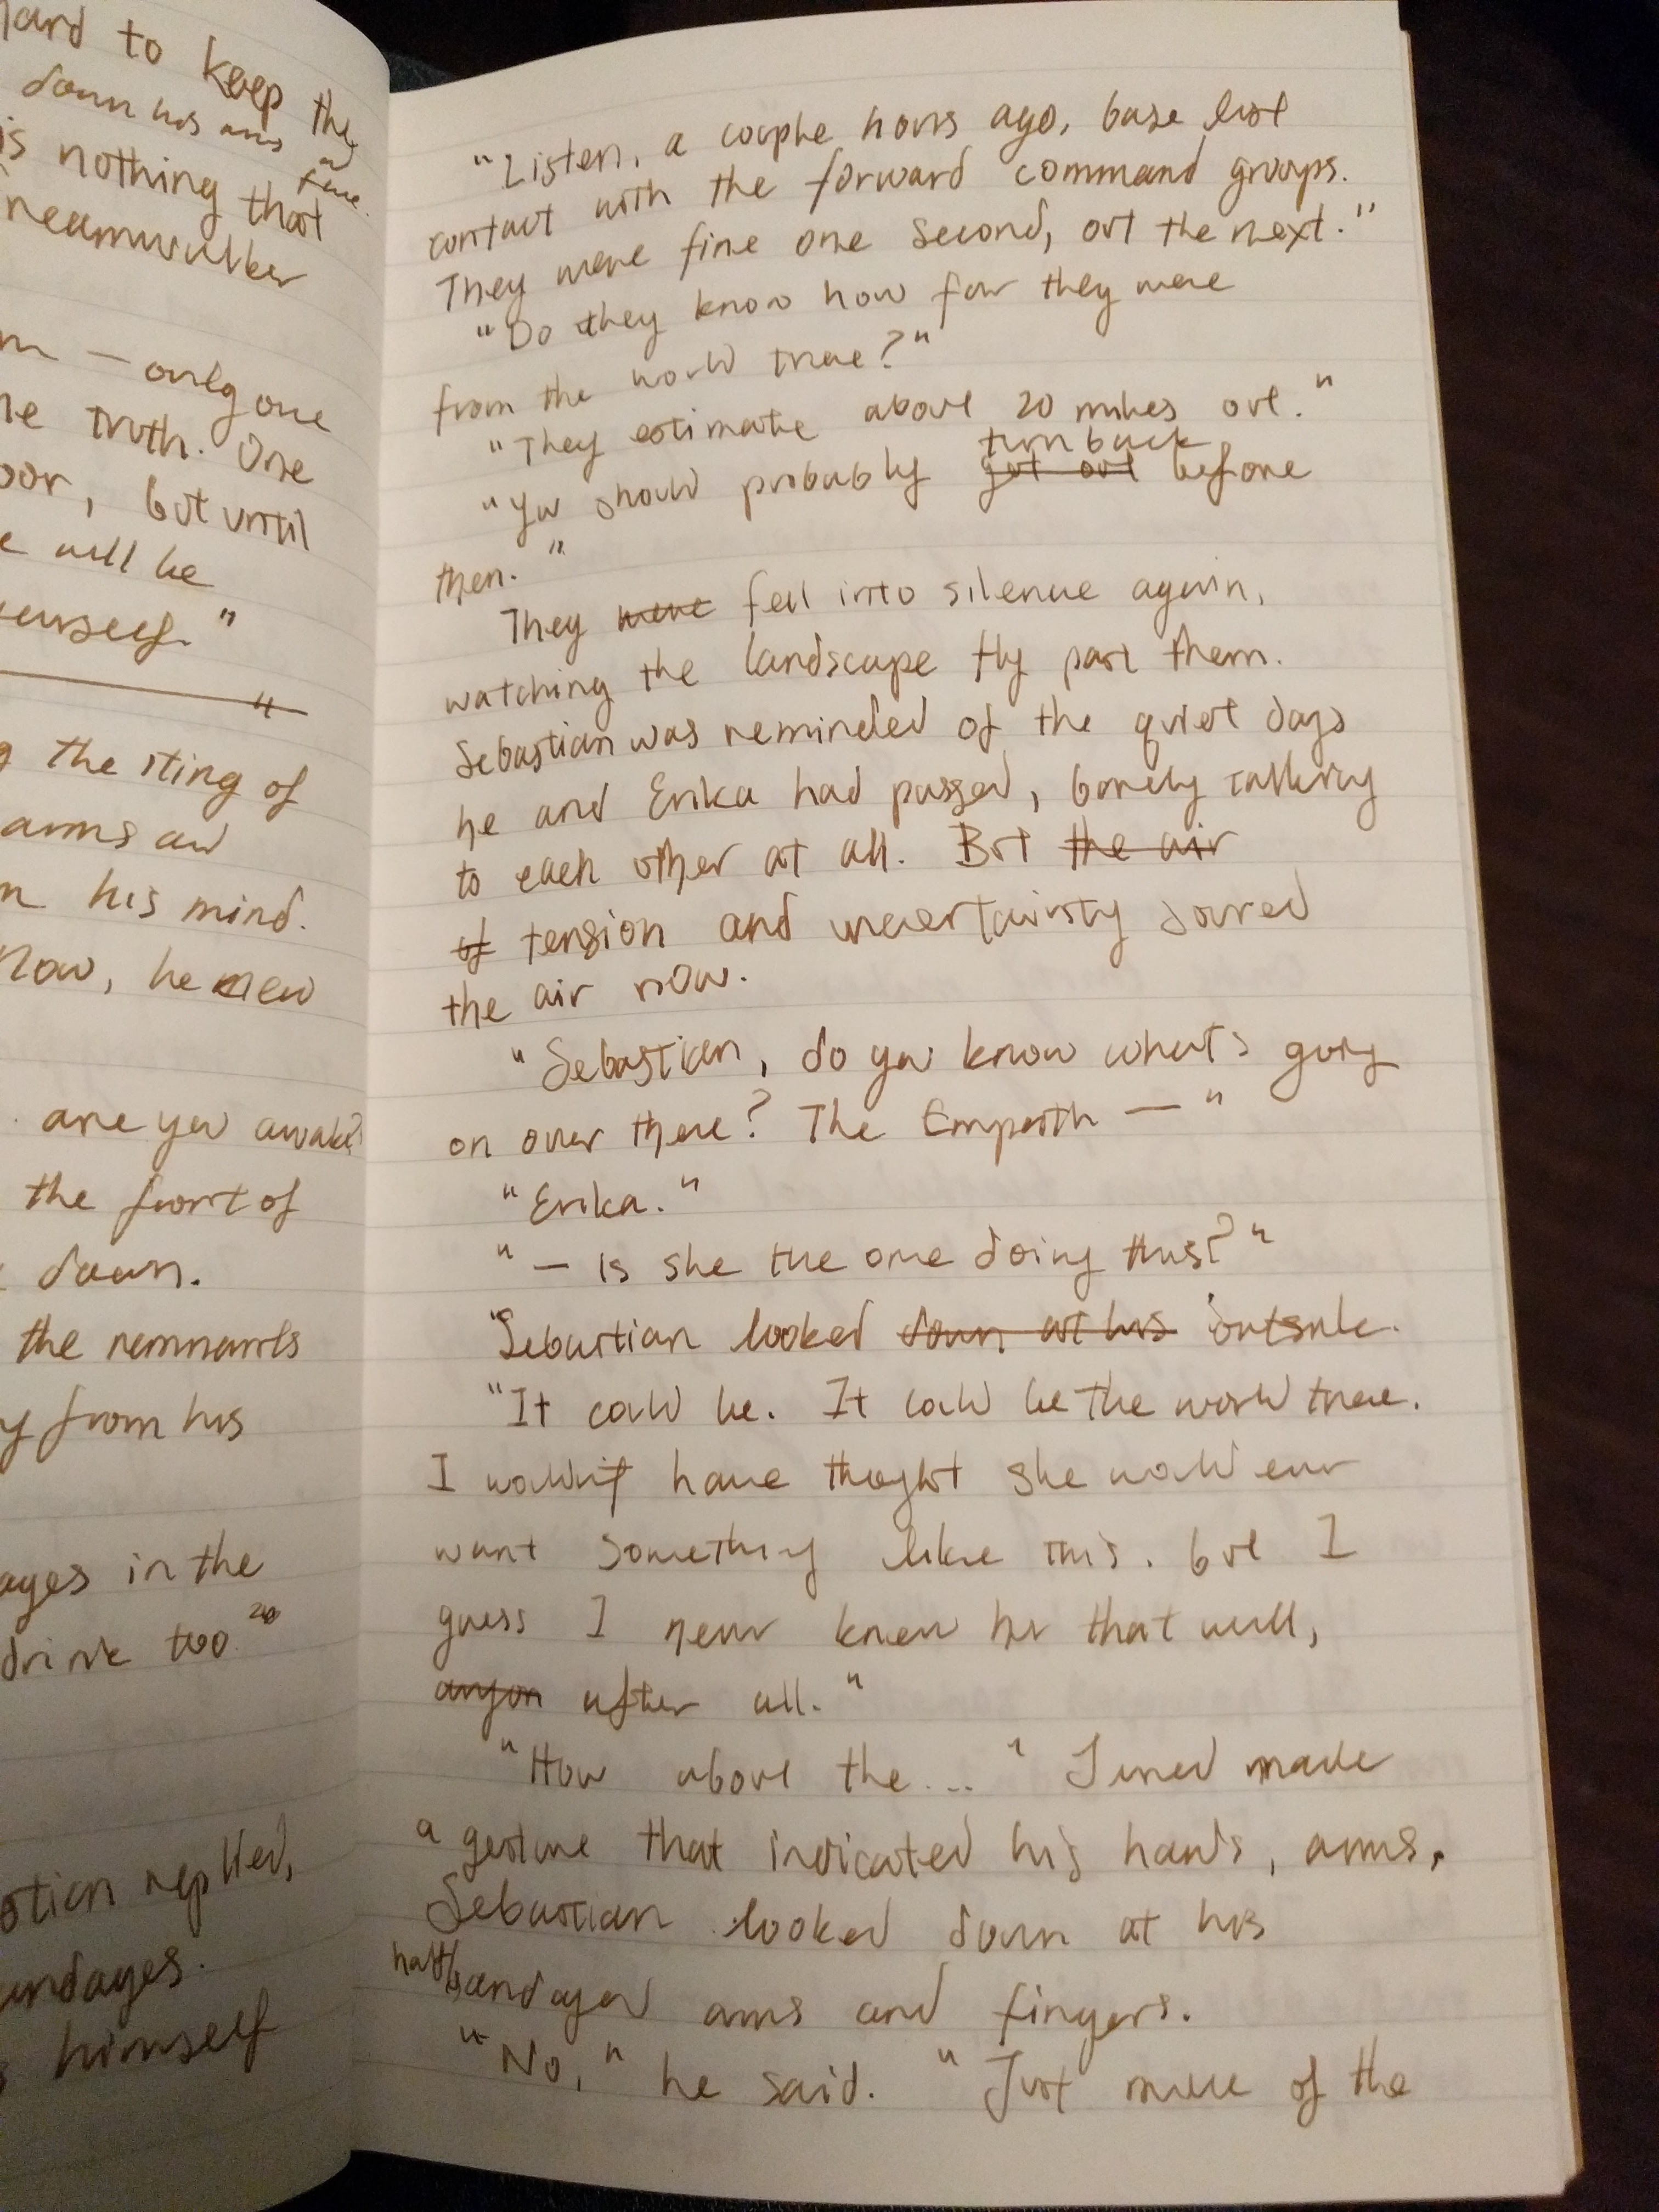 hard to keep the
down his arms
is nothing that
fine.
— only one
truth. One
, but until
will be
"
the sting of
arms and
his mind.
Now, he
are you awake?
the front of
down.
the remnants
from his
in the
drink too
replied,
himself
"Listen, a couple hours ago, base lost
contact with the forward command groups.
They were fine one second, out the next."
"Do they know how far they were
from the world tree?"
"They estimate about 20 miles out."
turn back
"You should probably get out before
then."
They were fell into silence again,
watching the landscape fly past them.
Sebastian was reminded of the quiet days
he and Erika had passed, barely talking
to each other at all. But the air
of tension and uncertainty soured
the air now.
"Sebastian, do you know what's going
on over there? The Empath —"
"Erika."
"— is she the one doing this?"
Sebastian looked down at his outside.
"It could be. It could be the world tree.
I wouldn't have thought she would ever
want something like this. but I
guess I never knew her that well,
anyon after all."
"How about the..." Jared made
a gesture that indicated his hands, arms.
Sebastian looked down at his
half bandaged arms and fingers.
"No," he said. "Just more of the